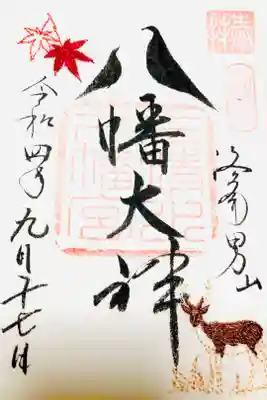 洛南男山
八幡大神
令和四年九月二十七日